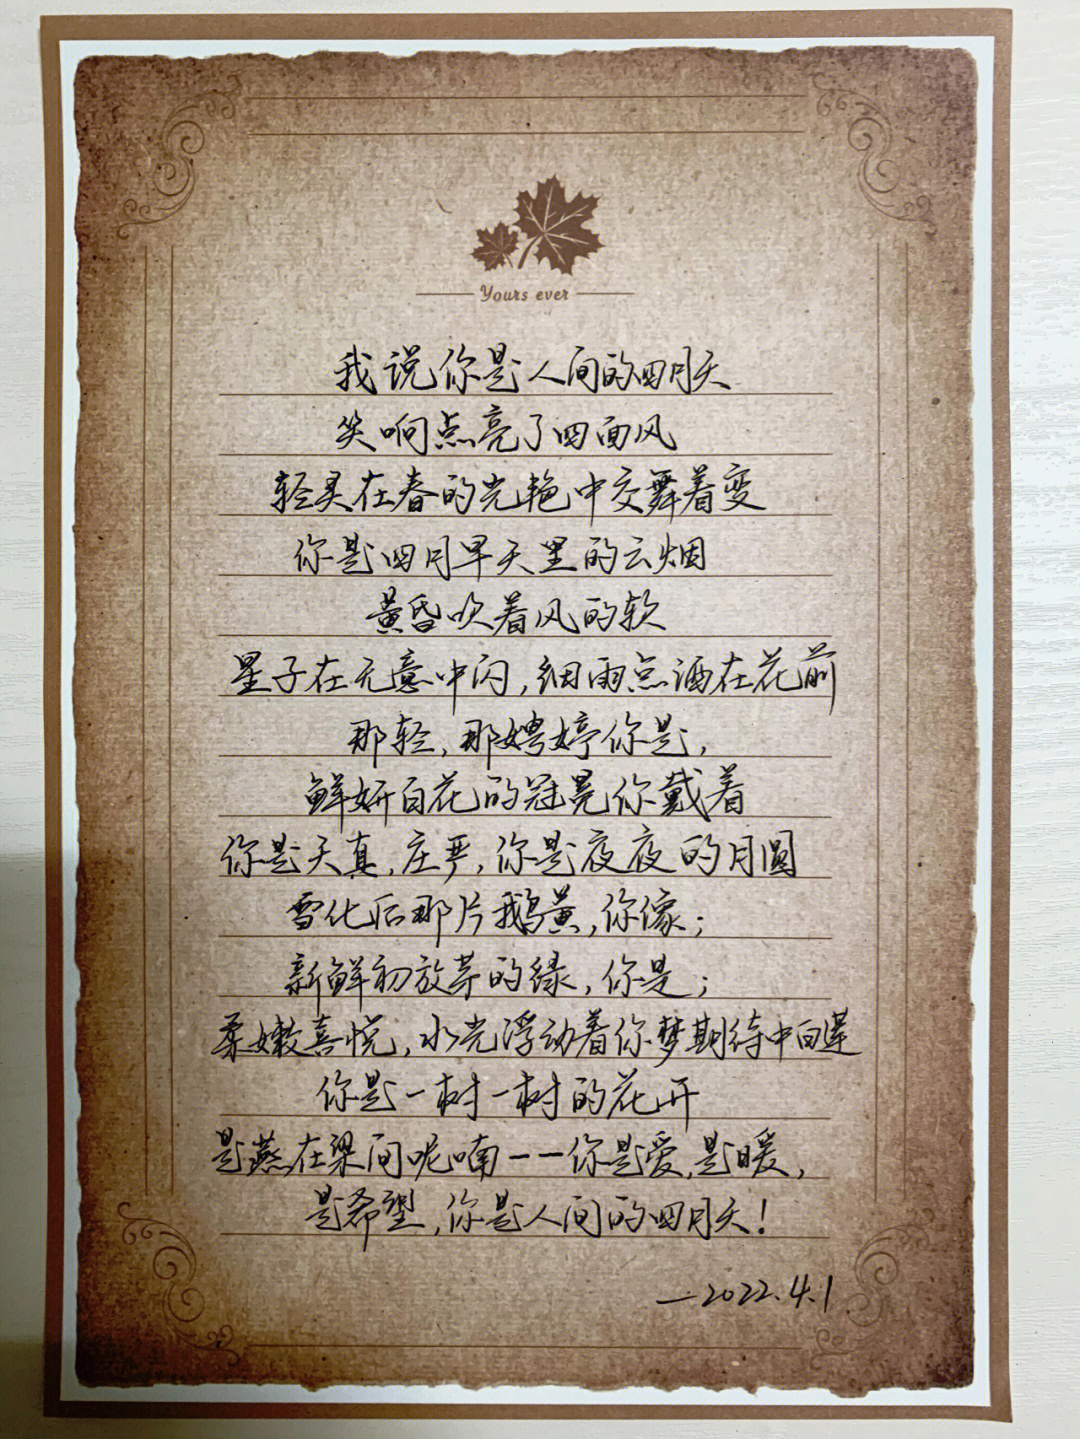 Yours ever
我说你是人间的四月天
笑响点亮了四面风
轻灵在春的光艳中交舞着变
你是四月早天里的云烟
黄昏吹着风的软
星子在无意中闪,细雨点洒在花前
那轻,那娉婷你是,
鲜妍百花的冠冕你戴着
你是天真,庄严,你是夜夜的月圆
雪化后那片鹅黄,你像;
新鲜初放芽的绿,你是;
柔嫩喜悦,水光浮动着你梦期待中白莲
你是一树一树的花开
是燕在梁间呢喃——你是爱,是暖,
是希望,你是人间的四月天!
—2022.4.1